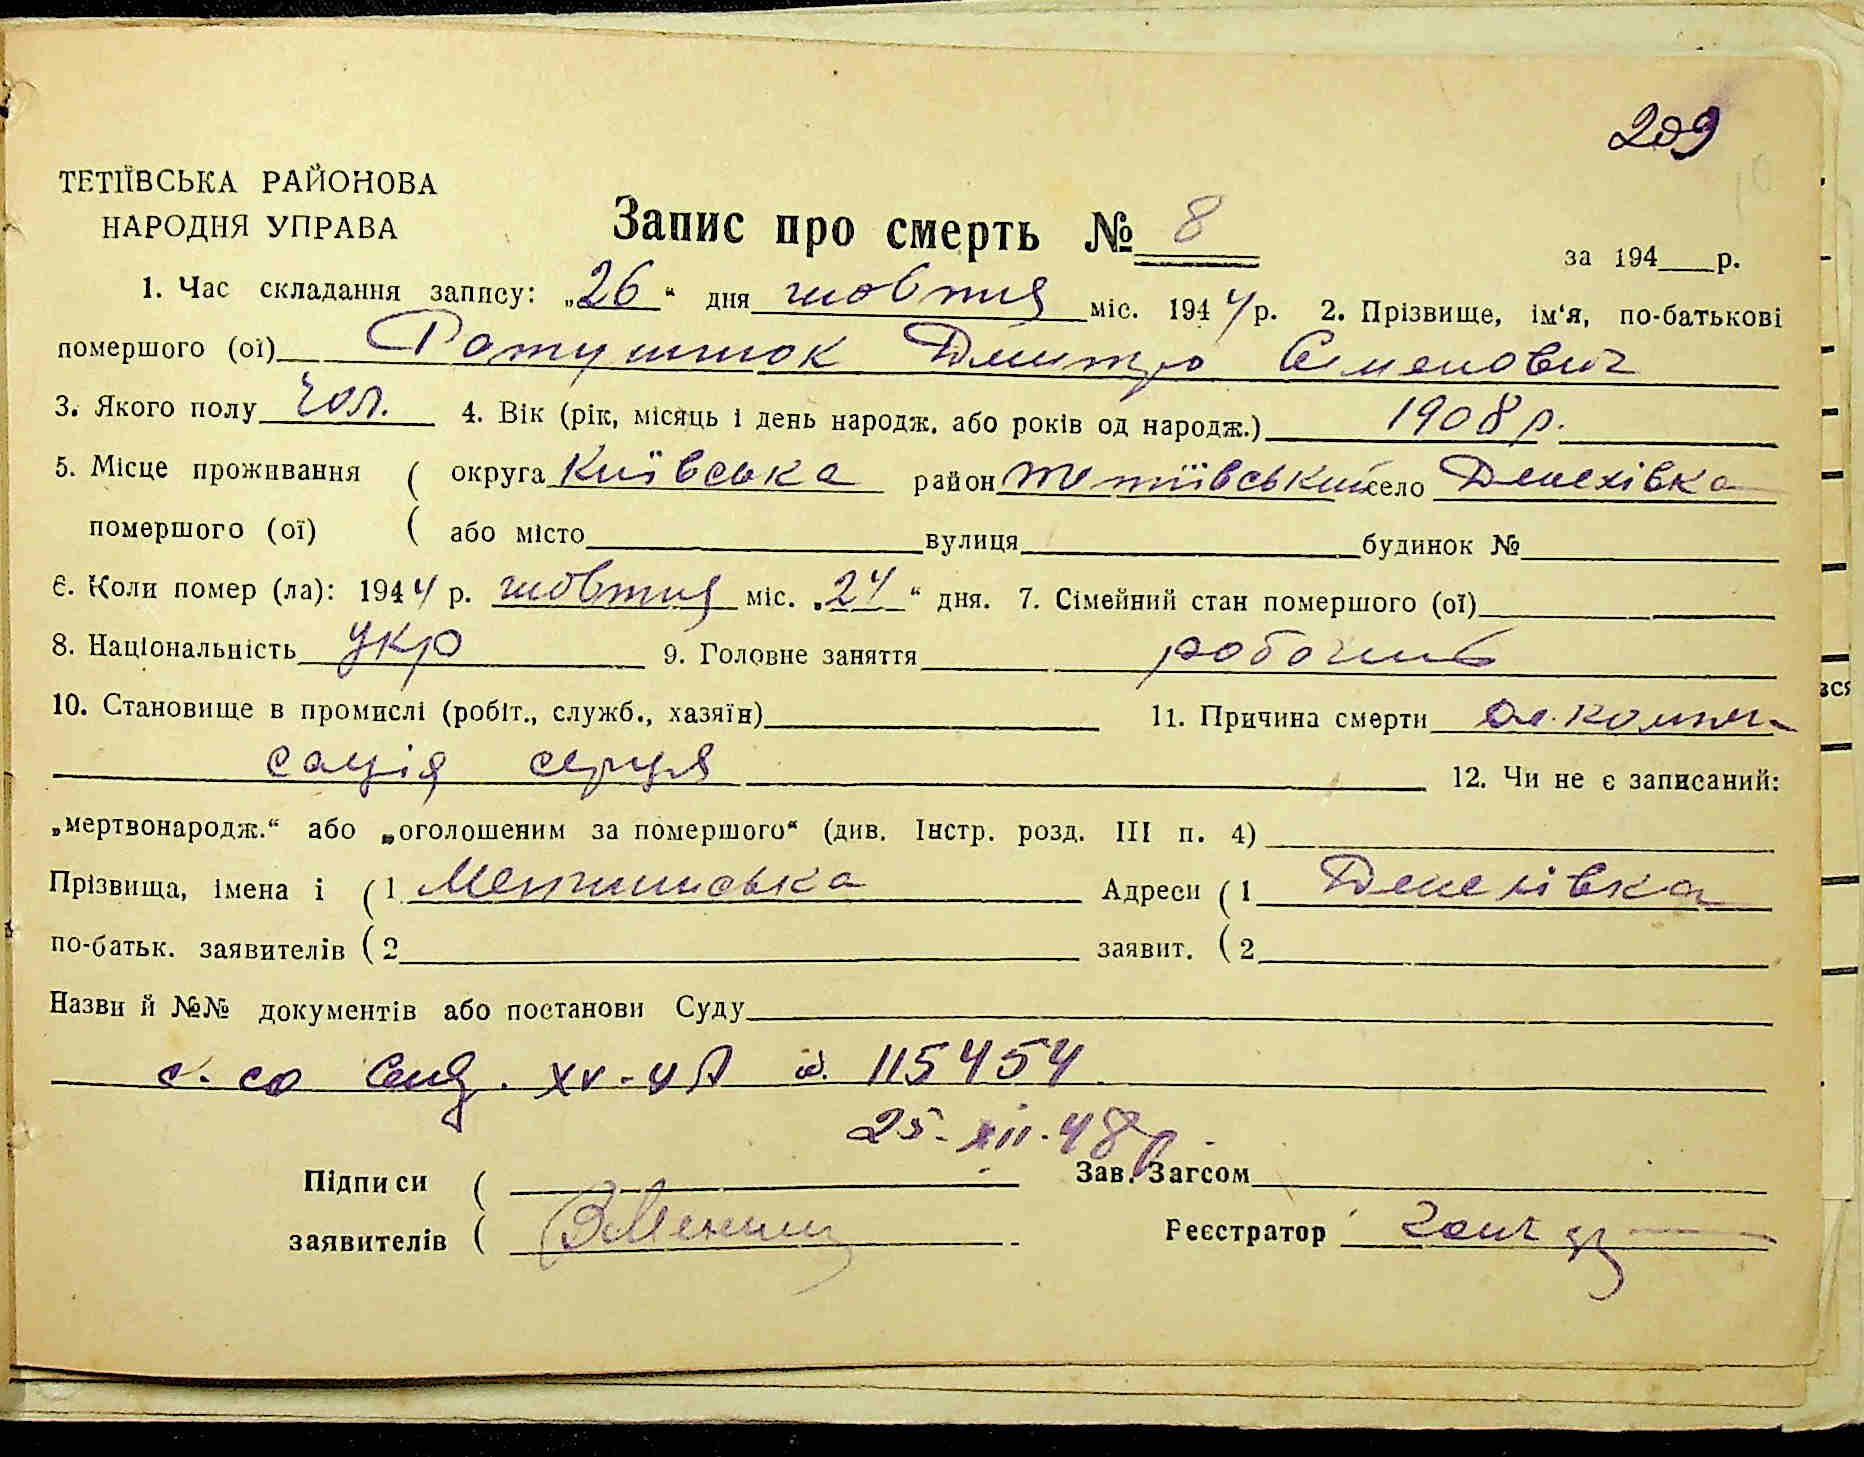 209
ТЕТІЇВСЬКА РАЙОНОВА
НАРОДНЯ УПРАВА
Запис про смерть № 8
за 194 р.
1. Час складання запису: „26“ дня жовтня міс. 1944 р. 2. Прізвище, ім‘я, по-батькові
помершого (ої) Ратушнюк Дмитро Семенович
3. Якого полу чол. 4. Вік (рік, місяць і день народж. або років од народж.) 1908 р.
5. Місце проживання ( округа Київська район Тетіївський село Денехівка
помершого (ої) ( або місто вулиця будинок №
6. Коли помер (ла): 1944 р. жовтня міс. „24“ дня. 7. Сімейний стан помершого (ої)
8. Національність укр 9. Головне заняття
10. Становище в промислі (робіт., служб., хазяїн) 11. Причина смерти
сація серця 12. Чи не є записаний:
„мертвонародж.“ або „оголошеним за помершого“ (див. Інстр. розд. III п. 4)
Прізвища, імена і ( 1 Адреси ( 1 Денехівка
по-батьк. заявителів ( 2 заявит. ( 2
Назви й №№ документів або постанови Суду
115454
25. XII. 48 р.
Підписи ( Зав. Загсом
заявителів ( Реєстратор